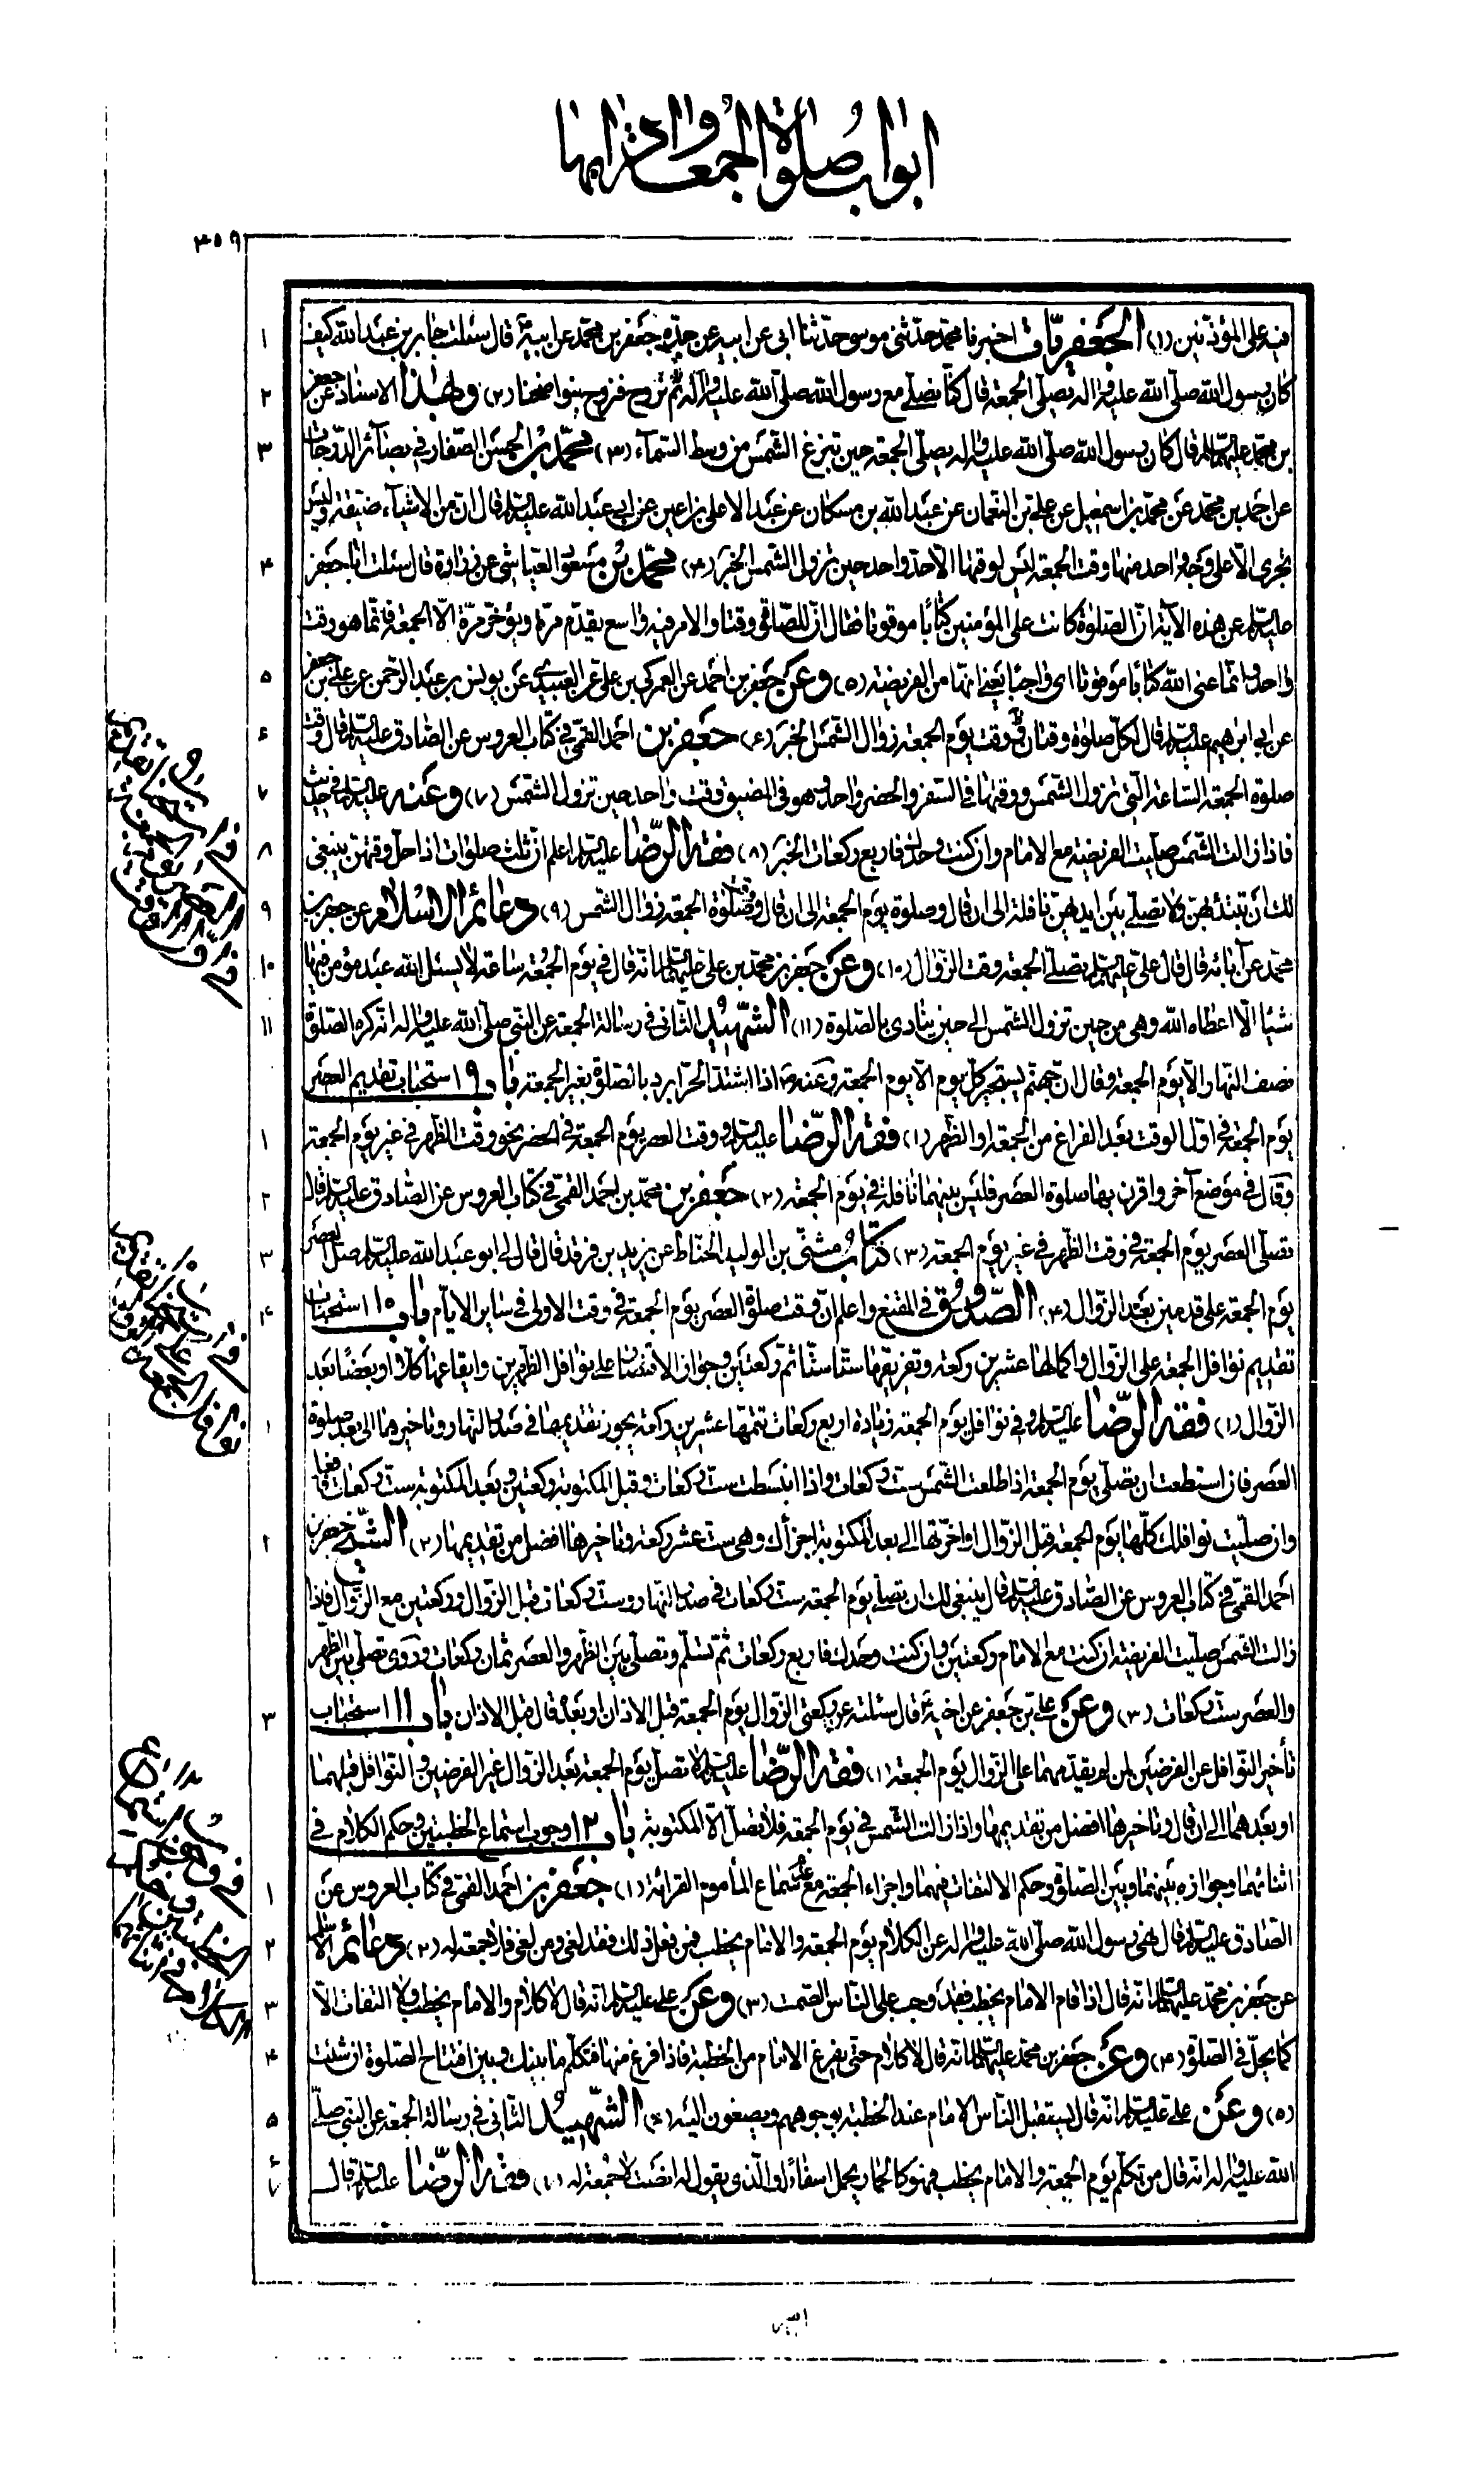 ابواب صلوة الجمعة وادابها
٣٥٩
فيه على المؤذنين (١) الجعفريات اخبرنا محمد حدثنى موسى حدثنا ابى عن ابيه عن جده جعفر بن محمد عن ابيه قال سئلت جابر بن عبد الله كيف
كان رسول الله صلى الله عليه واله يصلى الجمعة قال كنا نصلى مع رسول الله صلى الله عليه واله ثم نروح فنريح بنواضحنا (٢) وبهذا الاسناد عن جعفر
بن محمد عليهما السلم قال كان رسول الله صلى الله عليه واله يصلى الجمعة حين تبزغ الشمس من وسط السماء (٣) محمد بن الحسن الصفار فى بصائر الدرجات
عن احمد بن محمد عن محمد بن اسمعيل عن على بن النعمان عن عبد الله بن مسكان عن عبد الاعلى بن اعين عن ابى عبد الله عليه السلم قال ان من الاشياء ضيقة وليس
تجرى الا على وجه واحد منها وقت الجمعة ليس لوقتها الا حد واحد حين تزول الشمس الخبر (٤) محمد بن مسعود العياشى عن زرارة قال سئلت ابا جعفر
عليه السلم عن هذه الآية ان الصلوة كانت على المؤمنين كتابا موقوتا فقال ان للصلوة وقتا والامر فيه واسع يقدم مرة ويؤخر مرة الا الجمعة فانما هو وقت
واحد وانما عنى الله كتابا موقوتا اى واجبا يعنى انها من الفريضة (٥) وعن جعفر بن احمد عن العمركى بن على عن العبيدى عن يونس بن عبد الرحمن عن على بن جعفر
عن ابى ابراهيم عليه السلم قال لكل صلوة وقتان وقت يوم الجمعة زوال الشمس الخبر (٦) جعفر بن احمد القمى فى كتاب العروس عن الصادق عليه السلم قال وقت
صلوة الجمعة الساعة التى تزول الشمس ووقتها فى السفر والحضر واحد وهو فى المضيق وقت واحد حين تزول الشمس (٧) وعنه عليه السلم فى حديث
فاذا زالت الشمس صليت الفريضة مع الامام وان كنت وحدك فاربع ركعات الخبر (٨) فقه الرضا عليه السلم اعلم ان ثلث صلوات اذا حل وقتهن ينبغى
لك ان تبتدئ بهن ولا تصلى بين ايديهن نافلة الى ان قال وصلوة يوم الجمعة الى ان قال ووقت صلوة الجمعة زوال الشمس (٩) دعائم الاسلام عن جعفر بن
محمد عن آبائه قال قال على عليه السلم يصلى الجمعة وقت الزوال (١٠) وعن جعفر بن محمد بن على عليهما السلم انه قال فى يوم الجمعة ساعة لا يسئل الله عبد مؤمن فيها
شيئا الا اعطاه الله وهى من حين تزول الشمس الى حين ينادى بالصلوة (١١) الشهيد الثانى فى رسالة الجمعة عن النبى صلى الله عليه واله انه كره الصلوة
نصف النهار الا يوم الجمعة وقال ان جهنم يستجر كل يوم الا يوم الجمعة وعنه ص اذا اشتد الحر ابرد بالصلوة بغير الجمعة باب ٩ استحباب تقديم العصر
يوم الجمعة فى اول الوقت بعد الفراغ من الجمعة او الظهر (١) فقه الرضا عليه السلم ووقت العصر يوم الجمعة فى الحضر نحو وقت الظهر فى غير يوم الجمعة
وقال فى موضع آخر واقرن بها صلوة العصر فليس بينهما نافلة فى يوم الجمعة (٢) جعفر بن محمد بن احمد القمى فى كتاب العروس عن الصادق عليه السلم قال
تصلى العصر يوم الجمعة فى وقت الظهر فى غير يوم الجمعة (٣) كتاب مثنى بن الوليد الحناط عن يزيد بن فرقد قال قال لى ابو عبد الله عليه السلم صل العصر
يوم الجمعة على قدمين بعد الزوال (٤) الصدوق فى المقنع واعلم ان وقت صلوة العصر يوم الجمعة فى وقت الاولى فى ساير الايام باب ١٠ استحباب
تقديم نوافل الجمعة على الزوال واكمالها عشرين ركعة وتفريقها ستا ستا ثم ركعتين وجواز الاقتصار على نوافل الظهرين وايقاعها كلا او بعضا بعد
الزوال (١) فقه الرضا عليه السلم وفى نوافل يوم الجمعة زيادة اربع ركعات تتمها عشرين ركعة يجوز تقديمها فى صدر النهار وتاخيرها الى بعد صلوة
العصر فان استطعت ان تصلى يوم الجمعة اذا طلعت الشمس ست ركعات واذا انبسطت ست ركعات وقبل المكتوبة ركعتين وبعد المكتوبة ست ركعات فافعل
وان صليت نوافلك كلها يوم الجمعة قبل الزوال او اخرتها الى بعد المكتوبة اجزأك وهى ست عشر ركعة وتاخيرها افضل من تقديمها (٢) الشيخ جعفر بن
احمد القمى فى كتاب العروس عن الصادق عليه السلم قال ينبغى لك ان تصلى يوم الجمعة ست ركعات فى صدر النهار وست ركعات قبل الزوال وركعتين مع الزوال فاذا
زالت الشمس صليت الفريضة ان كنت مع الامام ركعتين وان كنت وحدك فاربع ركعات ثم تسلم وتصلى بين الظهر والعصر ثمان ركعات وروى تصلى بين الظهر
والعصر ست ركعات (٣) وعن على بن جعفر عن اخيه قال سئلته عن ركعتى الزوال يوم الجمعة قبل الاذان او بعده قال قبل الاذان باب ١١ استحباب
تأخير النوافل عن الفرضين لمن لم يقدمها على الزوال يوم الجمعة (١) فقه الرضا عليه السلم لا تصل يوم الجمعة بعد الزوال غير الفرضين والنوافل قبلهما
او بعدهما الى ان قال وتاخيرها افضل من تقديمها واذا زالت الشمس فى يوم الجمعة فلا تصل الا المكتوبة باب ١٢ وجوب استماع الخطبتين وحكم الكلام فى
اثنائهما وجوازه بينهما وبين الصلوة وحكم الالتفات فيهما واجزاء الجمعة مع عدم سماع المأموم القرائة (١) جعفر بن احمد القمى فى كتاب العروس عن
الصادق عليه السلم قال نهى رسول الله صلى الله عليه واله عن الكلام يوم الجمعة والامام يخطب فمن فعل ذلك فقد لغى ومن لغى فلا جمعة له (٢) دعائم الاسلام
عن جعفر بن محمد عليهما السلم انه قال اذا قام الامام يخطب فقد وجب على الناس الصمت (٣) وعن على عليه السلم انه قال لا كلام والامام يخطب ولا التفات الا
كما يحل فى الصلوة (٤) وعن جعفر بن محمد عليهما السلم انه قال لا كلام حتى يفرغ الامام من الخطبة فاذا فرغ منها فتكلم ما بينك وبين افتتاح الصلوة ان شئت
(٥) وعن على عليه السلم انه قال يستقبل الناس الامام عند الخطبة بوجوههم ويصغون اليه (٦) الشهيد الثانى فى رسالة الجمعة عن النبى صلى
الله عليه واله انه قال من تكلم يوم الجمعة والامام يخطب فهو كالحمار يحمل اسفارا والذى يقول له انصت لا جمعة له (٧) فقه الرضا عليه السلم قال